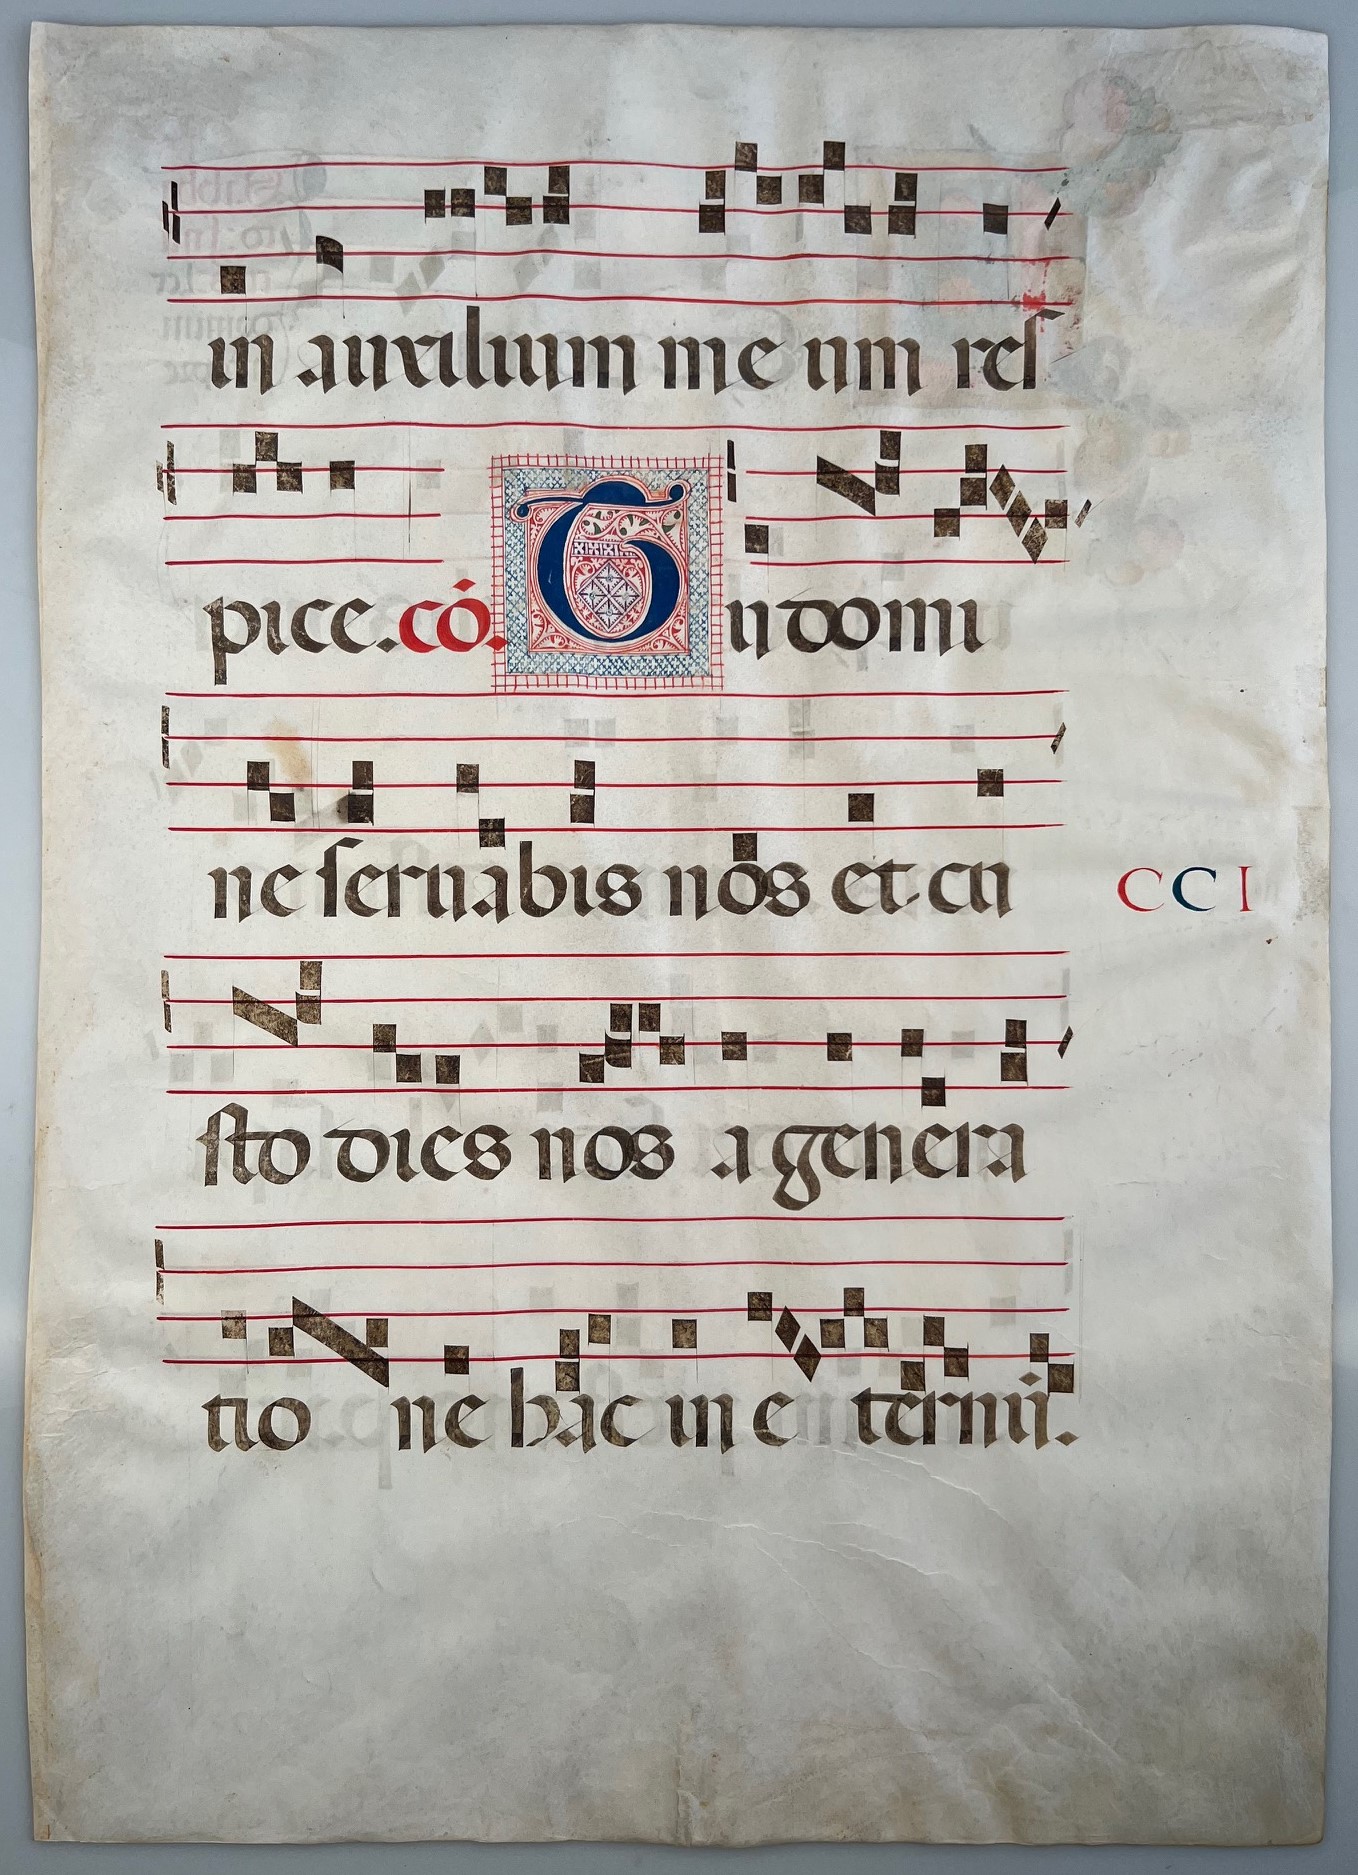 in auxilium me um res
pice. có. Tu domi
ne seruabis nos et cu
sto dies nos a genera
tio ne hac in e ternū.
CCI